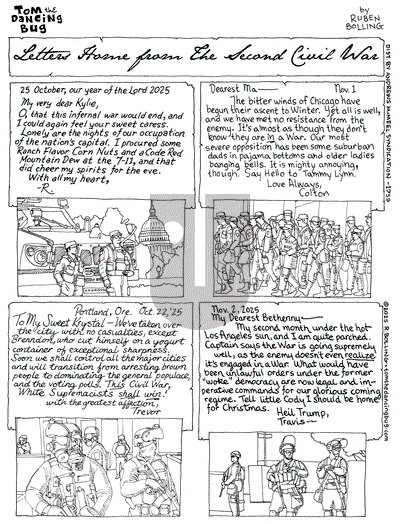 TOM the
DANCING
BUG
by
RUBEN
BOLLING
Letters Home from The Second Civil War
25 October, our year of the Lord 2025
My very dear Kylie,
O, that this infernal war would end, and
I could again feel your sweet caress.
Lonely are the nights of our occupation
of the nation's capital. I procured some
Ranch Flavor Corn Nuts and a Code Red
Mountain Dew at the 7-11, and that
did cheer my spirits for the eve.
With all my heart,
-R.
Dearest Ma— Nov. 1
The bitter winds of Chicago have
begun their ascent to Winter. Yet all is well,
and we have met no resistance from the
enemy. It's almost as though they don't
know they are in a War. Our most
severe opposition has been some suburban
dads in pajama bottoms and older ladies
banging bells. It is mighty annoying,
though. Say Hello to Tammy Lynn.
Love Always,
Colton
Portland, Ore. Oct. 22, '25
To My Sweet Krystal—We've taken over
the city with no casualties, except
Brenndon, who cut himself on a yogurt
container of exceptional sharpness.
Soon we shall control all the major cities
and will transition from arresting brown
people to dominating the general populace,
and the voting polls. This Civil War,
White Supremacists shall win!
with the greatest affection,
Trevor
Nov. 2, 2025
My Dearest Bethenny—
My second month under the hot
Los Angeles sun, and I am quite parched.
Captain says the War is going supremely
well, as the enemy doesn't even realize
it's engaged in a War. What would have
been unlawful orders under the former
"woke" democracy are now legal and im-
perative commands for our glorious coming
regime. Tell little Cody I should be home
for Christmas.
Heil Trump,
Travis—
DIST. BY ANDREWS McMEEL SYNDICATION -1759
©2025 R. BOLLING - tomthedancingbug.com